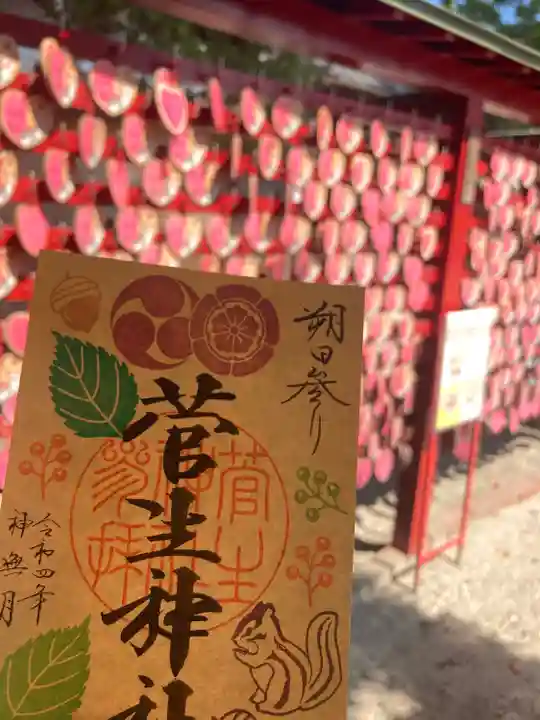 朔日参り
菅生神社
菅生神社参拝
令和四年
神無月